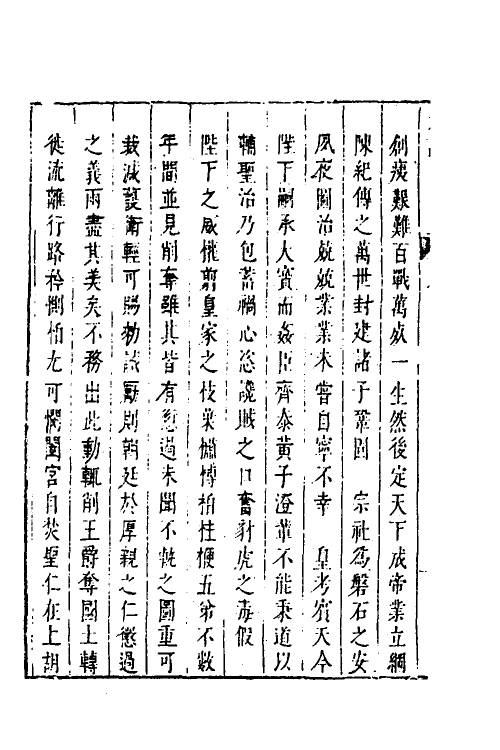 創痍艱難百戰萬死一生然後定天下成帝業立綱
陳紀傳之萬世封建諸子鞏固　宗社為磐石之安
夙夜圖治兢兢業業未嘗自寧不幸　皇考賓天今
陛下嗣承大寶而姦臣齊泰黃子澄輩不能秉道以
輔聖治乃包蓄禍心恣讒賊之口奮豺虎之毒假
陛下之威權剪皇家之枝葉橚榑栢桂楩五弟不數
年間並見削奪雖其皆有愆過未聞不軌之圖重可
裁減護衛輕可賜敕誡厲則朝廷於厚親之仁懲過
之義兩盡其美矣不務出此動輒削王爵奪國土轉
徙流離行路矜惻栢尤可憫闔宮自焚聖仁在上胡